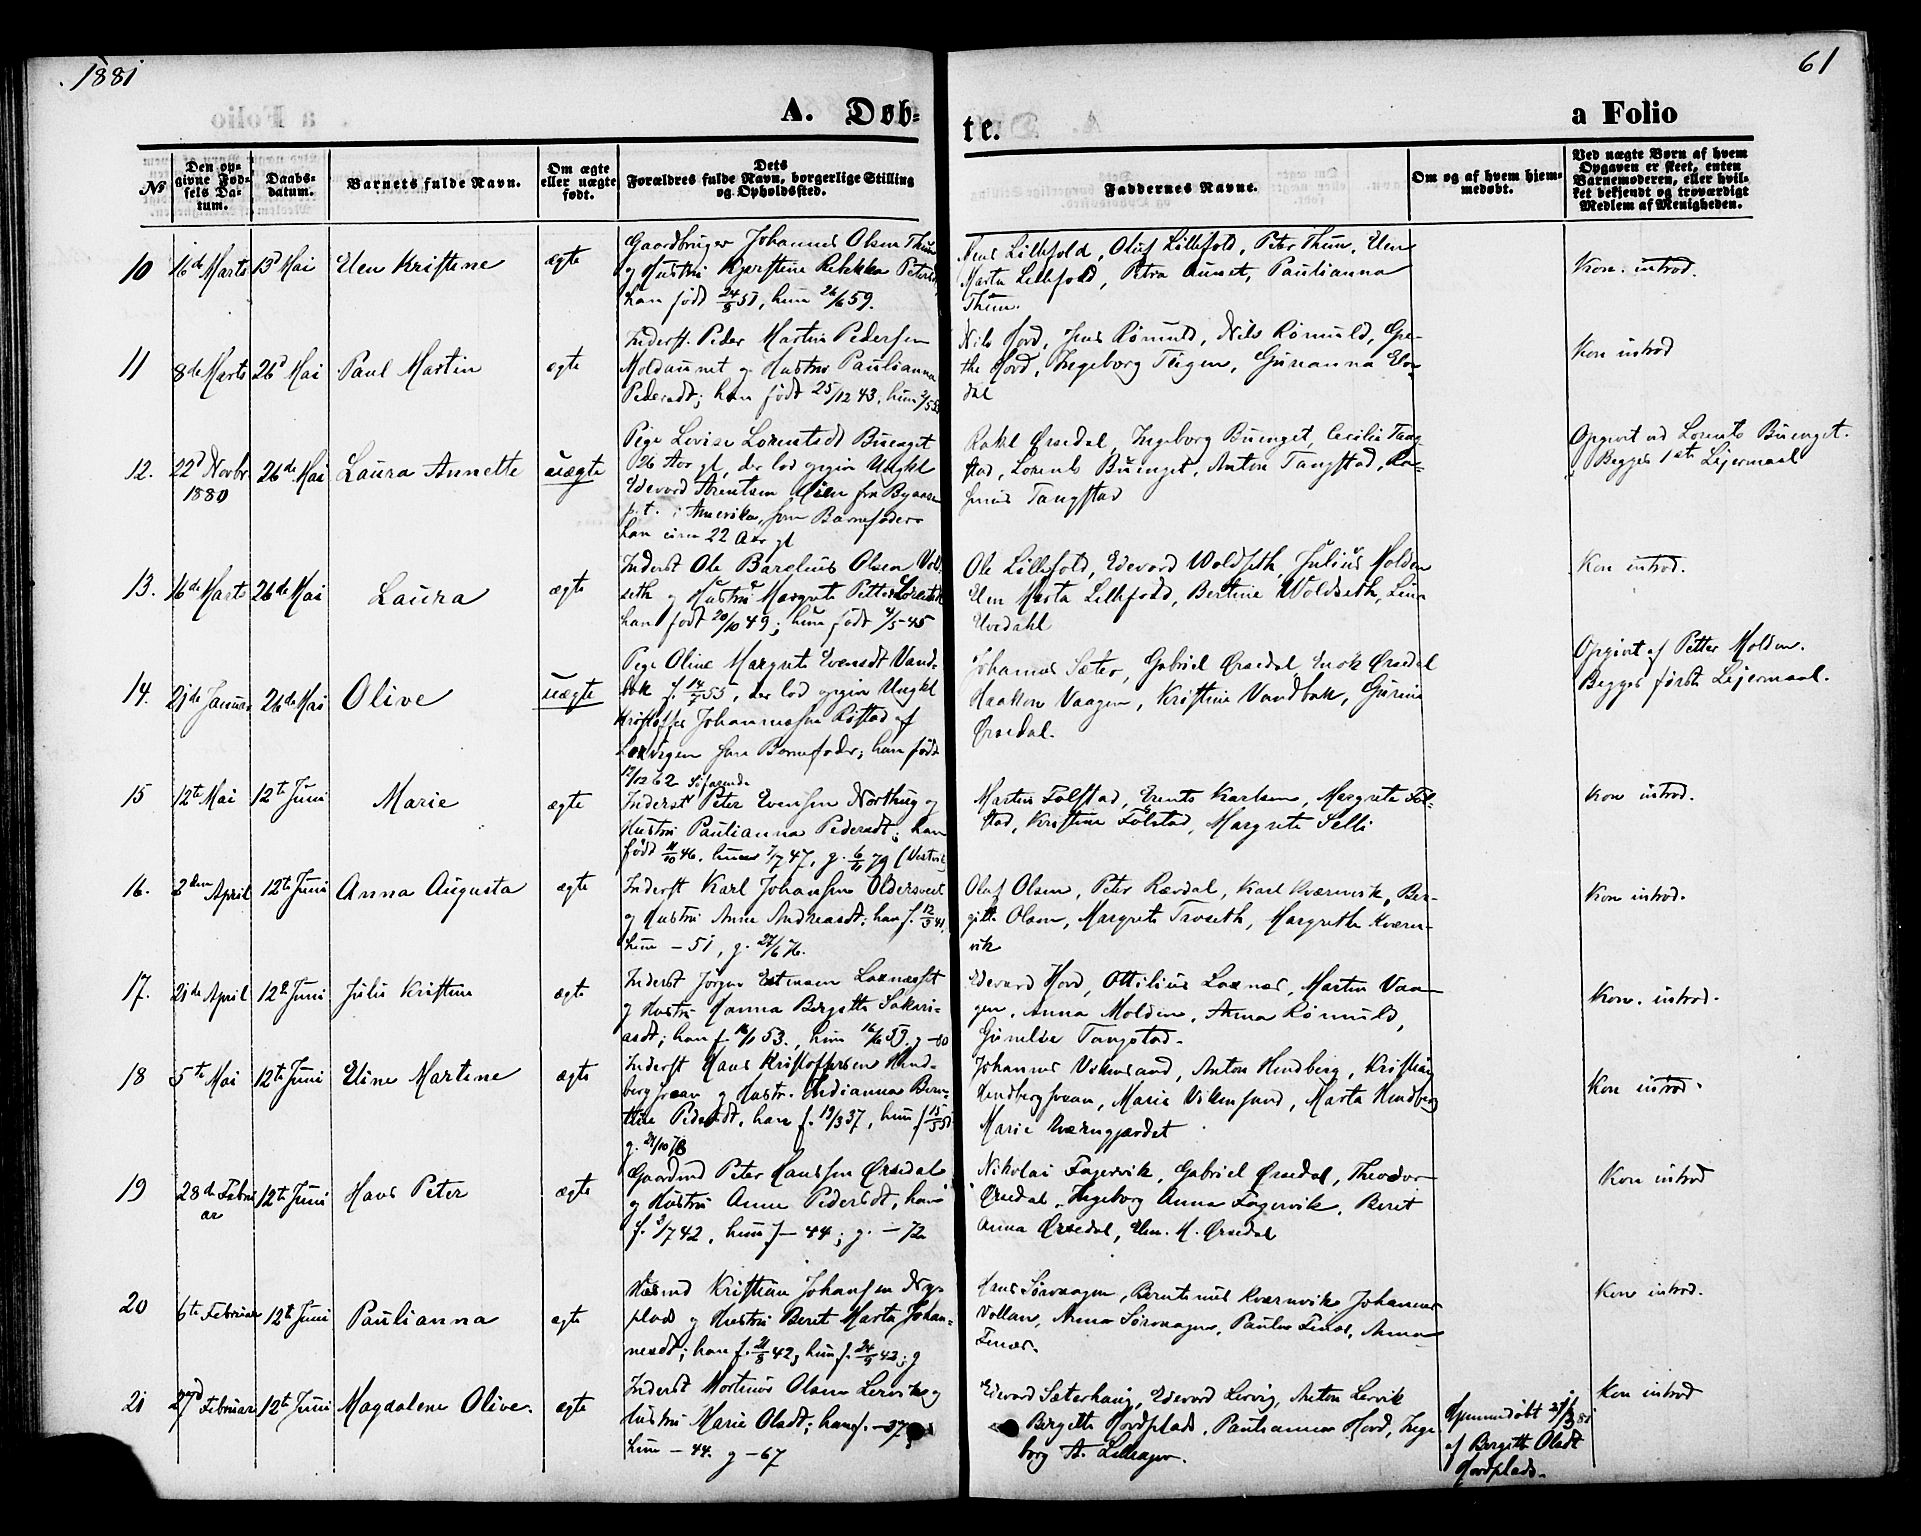 1881
61
A. Døb-
te.
a Folio
№
Den op-
givne Fød-
sels Da-
tum.
Daabs-
datum.
Barnets fulde Navn.
Om ægte
eller uægte
født.
Dets
Forældres fulde Navn, borgerlige Stilling
og Opholdssted.
Faddernes Navne.
Om og af hvem hjem-
medøbt.
Ved uægte Børn af hvem
Opgaven er skeet, enten
Barnemoderen, eller hvil-
ket bekjendt og troværdigt
Medlem af Menigheden.
10
16d Marts
13d Mai
Elen Kristine
ægte
Gaardbruger Johannes Olsen Thun
og Hustru Kjerstine Rebekka Petersdt
han født 24/8 51, hun 26/6 59.
Jens Lillefold, Oluf Lillefold, Peter Thun, Elen
Marta Lillefold, Petra Aunet, Paulianna
Thun.
Kon. introd.
11
8de Marts
26d Mai
Paul Martin
ægte
Inderst. Peder Martin Pedersen
Moldaunet og Hustru Paulianna
Pedersdt; han født 25/12 43, hun
Nils Hord, Jens Rømuld, Nils Rømuld, Gre-
the Hord, Ingeborg Teigen, Gurianna
dal
Kon introd
12.
22d Novbr
1880
26de Mai
Laura Annette
uægte
Pige Lovise Lorentsdt Buenget
26 Aar gl, der lod opgive Ungkl
Edevard Arentsen Øien fra Bynæs
p.t. i Amerika, som Barnefader
han circa 22 Aar gl
Rakel Ørsedal, Ingeborg Buenget, Cecilia Tang-
stad, Lorents Buenget, Anton Tangstad, Ra-
smus Tangstad
Opgivet ved Lorents Buenget.
Begges 1ste Lejermaal
13.
16de Marts
26de Mai
Laura
ægte
Inderst Ole Barelius Olsen Vold-
seth og Hustru Margrete Petter
han født 20/10 49; hun født 4/5-45
Ole Lillefold, Edevard Woldseth, Julius Molden
Elen Marta Lillefold, Bertine Woldseth, Lina
Uvedahl
Kon introd.
14.
21de Januar
26de Mai
Olive
uægte
Pige Oline Margrete Evensdt Vand-
bak f. 14/7 55, der lod opgive Ungkl
Kristoffer Johannessen Røstad af
Lexvigen som Barnefader; han født
17/12 62
Johannes Sæter, Gabriel Ørsedal Enok Ørsedal
Haakon Vaagen, Kristine Vandbak, Gurine
Ørsedal.
Opgivet af Petter Molden.
Begges første Lejermaal.
15
12te Mai
12te Juni
Marie
ægte
Inderst Peter Evensen Northug og
Hustru Paulianna Pedersdt; han
født 11/10 46, hun 7/7 47, g. 6/11 79
Martin Folstad, Erents Karlsen, Margrete Fol-
stad, Kristine Folstad, Margrete Selli
Kon introd.
16.
2den April
12te Juni
Anna Augusta
ægte
Inderst Karl Johansen Oldersveet
og Hustru Anne Andreasdt; han f. 12/3 41,
hun - 51, g. 27/6 76.
Oluf Olsen, Peter Rævdal, Karl Kværnvik, Ber-
gitte Olsen, Margrete Troseth, Margrethe Kværn-
vik
Kon introd.
17.
21de April
12te Juni
Julie Kristine
ægte
Inderst Jørgen Estensen Laxnæsset
og Hustru Hanna Bergitte Sakari-
asdt; han f. 16/1 53., hun 16/6 59. g -80
Edevard Hord, Ottilius Laxnæs, Martin Vaa-
gen, Anna Molden, Anna Rømuld,
Gunelie Tangstad.
Kon. introd.
18
5te Mai
12te Juni
Eline Martine
ægte
Inderst Hans Kristoffersen Hind-
bergsvaan og Hustr. Indianna Beren-
tine Pedersdt, han f. 19/3 37, hun f 15/5 51
g. 24/10 78
Johannes Vikensand, Anton Hindberg, Kristian
Hindbergsvaan, Marie Vikensand, Marta Hindberg
Marie Kværngjærdet
Kon introd.
19
28de Febru
ar
12te Juni
Hans Peter
ægte
Gaardmd Peter Hanssen Ørsedal
og Hustru Anne Pedersdt, han
f. 3/7 42, hun f - 44; g. - 72
Nikolai Fagervik, Gabriel Ørsedal, Theodor
Ørsedal, Ingeborg Anna Fagervik, Beret
Anna Ørsedal, Elen. M. Ørsedal
Kon introd
20
6te Februar
12te Juni
Paulianna
ægte
Husmd Kristian Johansen Nyp-
plads og Hustru Beret Marta Johan-
nesdt; han f. 21/8 42, hun f. 24/9 42; g
Hans Sørvaagen, Berntinus Kværnvik, Johannes
Vollan, Anna Sørvaagen, Pauline Finæs, Anna
Finæs.
Kon introd.
21
27d Februar
12te Juni
Magdalene Olive.
ægte
Inderst Mortinus Olsen Lervik og
Hustru Marie Olsdt; han f. - 37,
hun - 44. g - 67
Edevard Sæterhaug, Edevard Lervig, Anton Lervik
Bergitte Hordplads, Paulianna Hord, Inge-
borg A. Lilleager.
Hjemmedøbt
af Bergitte Olsdt
Hordplads.
Kon introd